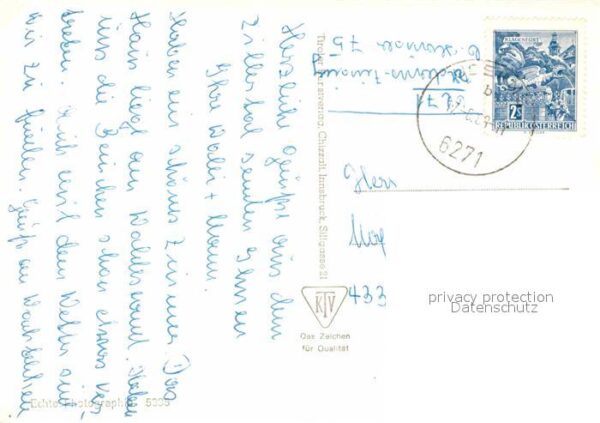 Herzliche Grüße aus dem
Zillertal senden Ihnen
Ihre Walli + Mann.
Haben ein schönes Zimmer. Das
Haus liegt am Waldesrand. Haben
uns die Beinchen schon etwas ver
treten. Auch mit dem Wetter sind
wir zu frieden. Gruß an
Tiroler Kunstverlag Chizzali, Innsbruck, Sillgasse 21
KTV
Das Zeichen
für Qualität
Echte Photographie 5335
KLAGENFURT
2S
REPUBLIK ÖSTERREICH
6271
Herr
433
privacy protection
Datenschutz